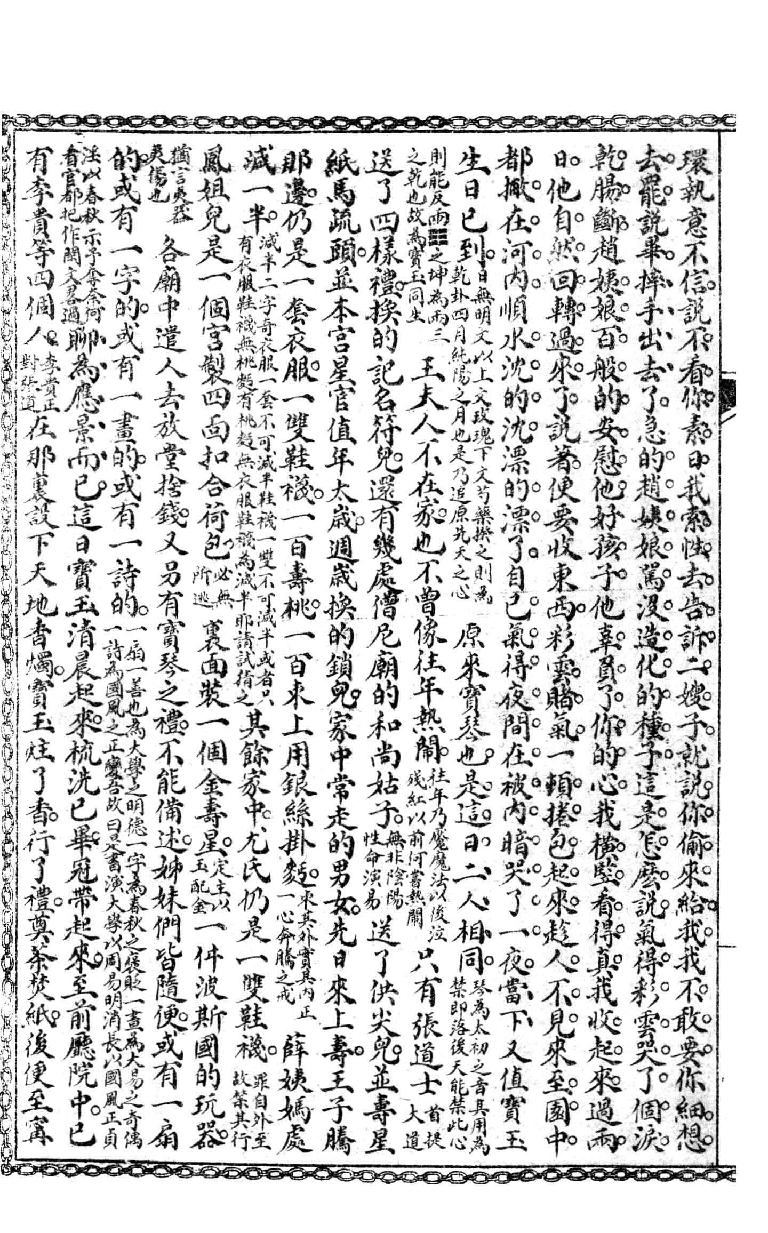 環執意不信說不看你素日我索性去告訴二嫂子就說你偷來給我我不敢要你細想
去罷說畢摔手出去了急的趙姨娘罵沒造化的種子這是怎麼說氣得彩雲哭了個淚
乾腸斷趙姨娘百般的安慰他好孩子他辜負了你的心我橫豎看得真我收起來過兩
日他自然回轉過來了說著便要收東西彩雲賭氣一頓捲包起來趁人不見來至園中
都撇在河內順水沈的沈漂的漂了自己氣得夜間在被內暗哭了一夜當下又值寶玉
生日已到日無明文以上文玫瑰下文芍藥揆之則為乾卦四月純陽之月也是乃追原先天之心原來寶琴也是這日二人相同琴為太初之音具用為禁即落後天能禁此心
則能反兩☷之坤為兩三之乾也故為寶玉同生王夫人不在家也不曾像往年熱鬧往年乃魘魔法以後泣殘紅以前何嘗熱鬧只有張道士首提大道
送了四樣禮換的記名符兒還有幾處僧尼廟的和尚姑子無非陰陽性命演易送了供尖兒並壽星
紙馬疏頭並本宮星官值年太歲週歲換的鎖兒家中常走的男女先日來上壽王子騰
那邊仍是一套衣服一雙鞋襪一百壽桃一百束上用銀絲掛麪束其外實其內正一心命騰之戒薛姨媽處
減一半減半二字奇衣服一套不可減半鞋襪一雙不可減半或者只有衣服鞋襪無桃麪有桃麪無衣服鞋襪為減半耶請試猜之其餘家中尤氏仍是一雙鞋襪罪自外至故禁其行
鳳姐兒是一個宮製四面扣合荷包必無所逃裏面裝一個金壽星定主以玉配金一件波斯國的玩器
猶言夷器夷揚也各廟中遣人去放堂捨錢又另有寶琴之禮不能備述姊妹們皆隨便或有一扇
的或有一字的或有一畫的或有一詩的一扇一善也為大學之明德一字為春秋之褒貶一畫為大易之奇偶一詩為國風之正變吾故曰是書演大學以周易明消長以國風正貞
淫以春秋示予奪奈何看官都把作閑文畧過聊為應景而已這日寶玉清晨起來梳洗已畢冠帶起來至前廳院中已
有李貴等四個人李貴正對張道在那裏設下天地香燭寶玉炷了香行了禮奠茶焚紙後便至甯